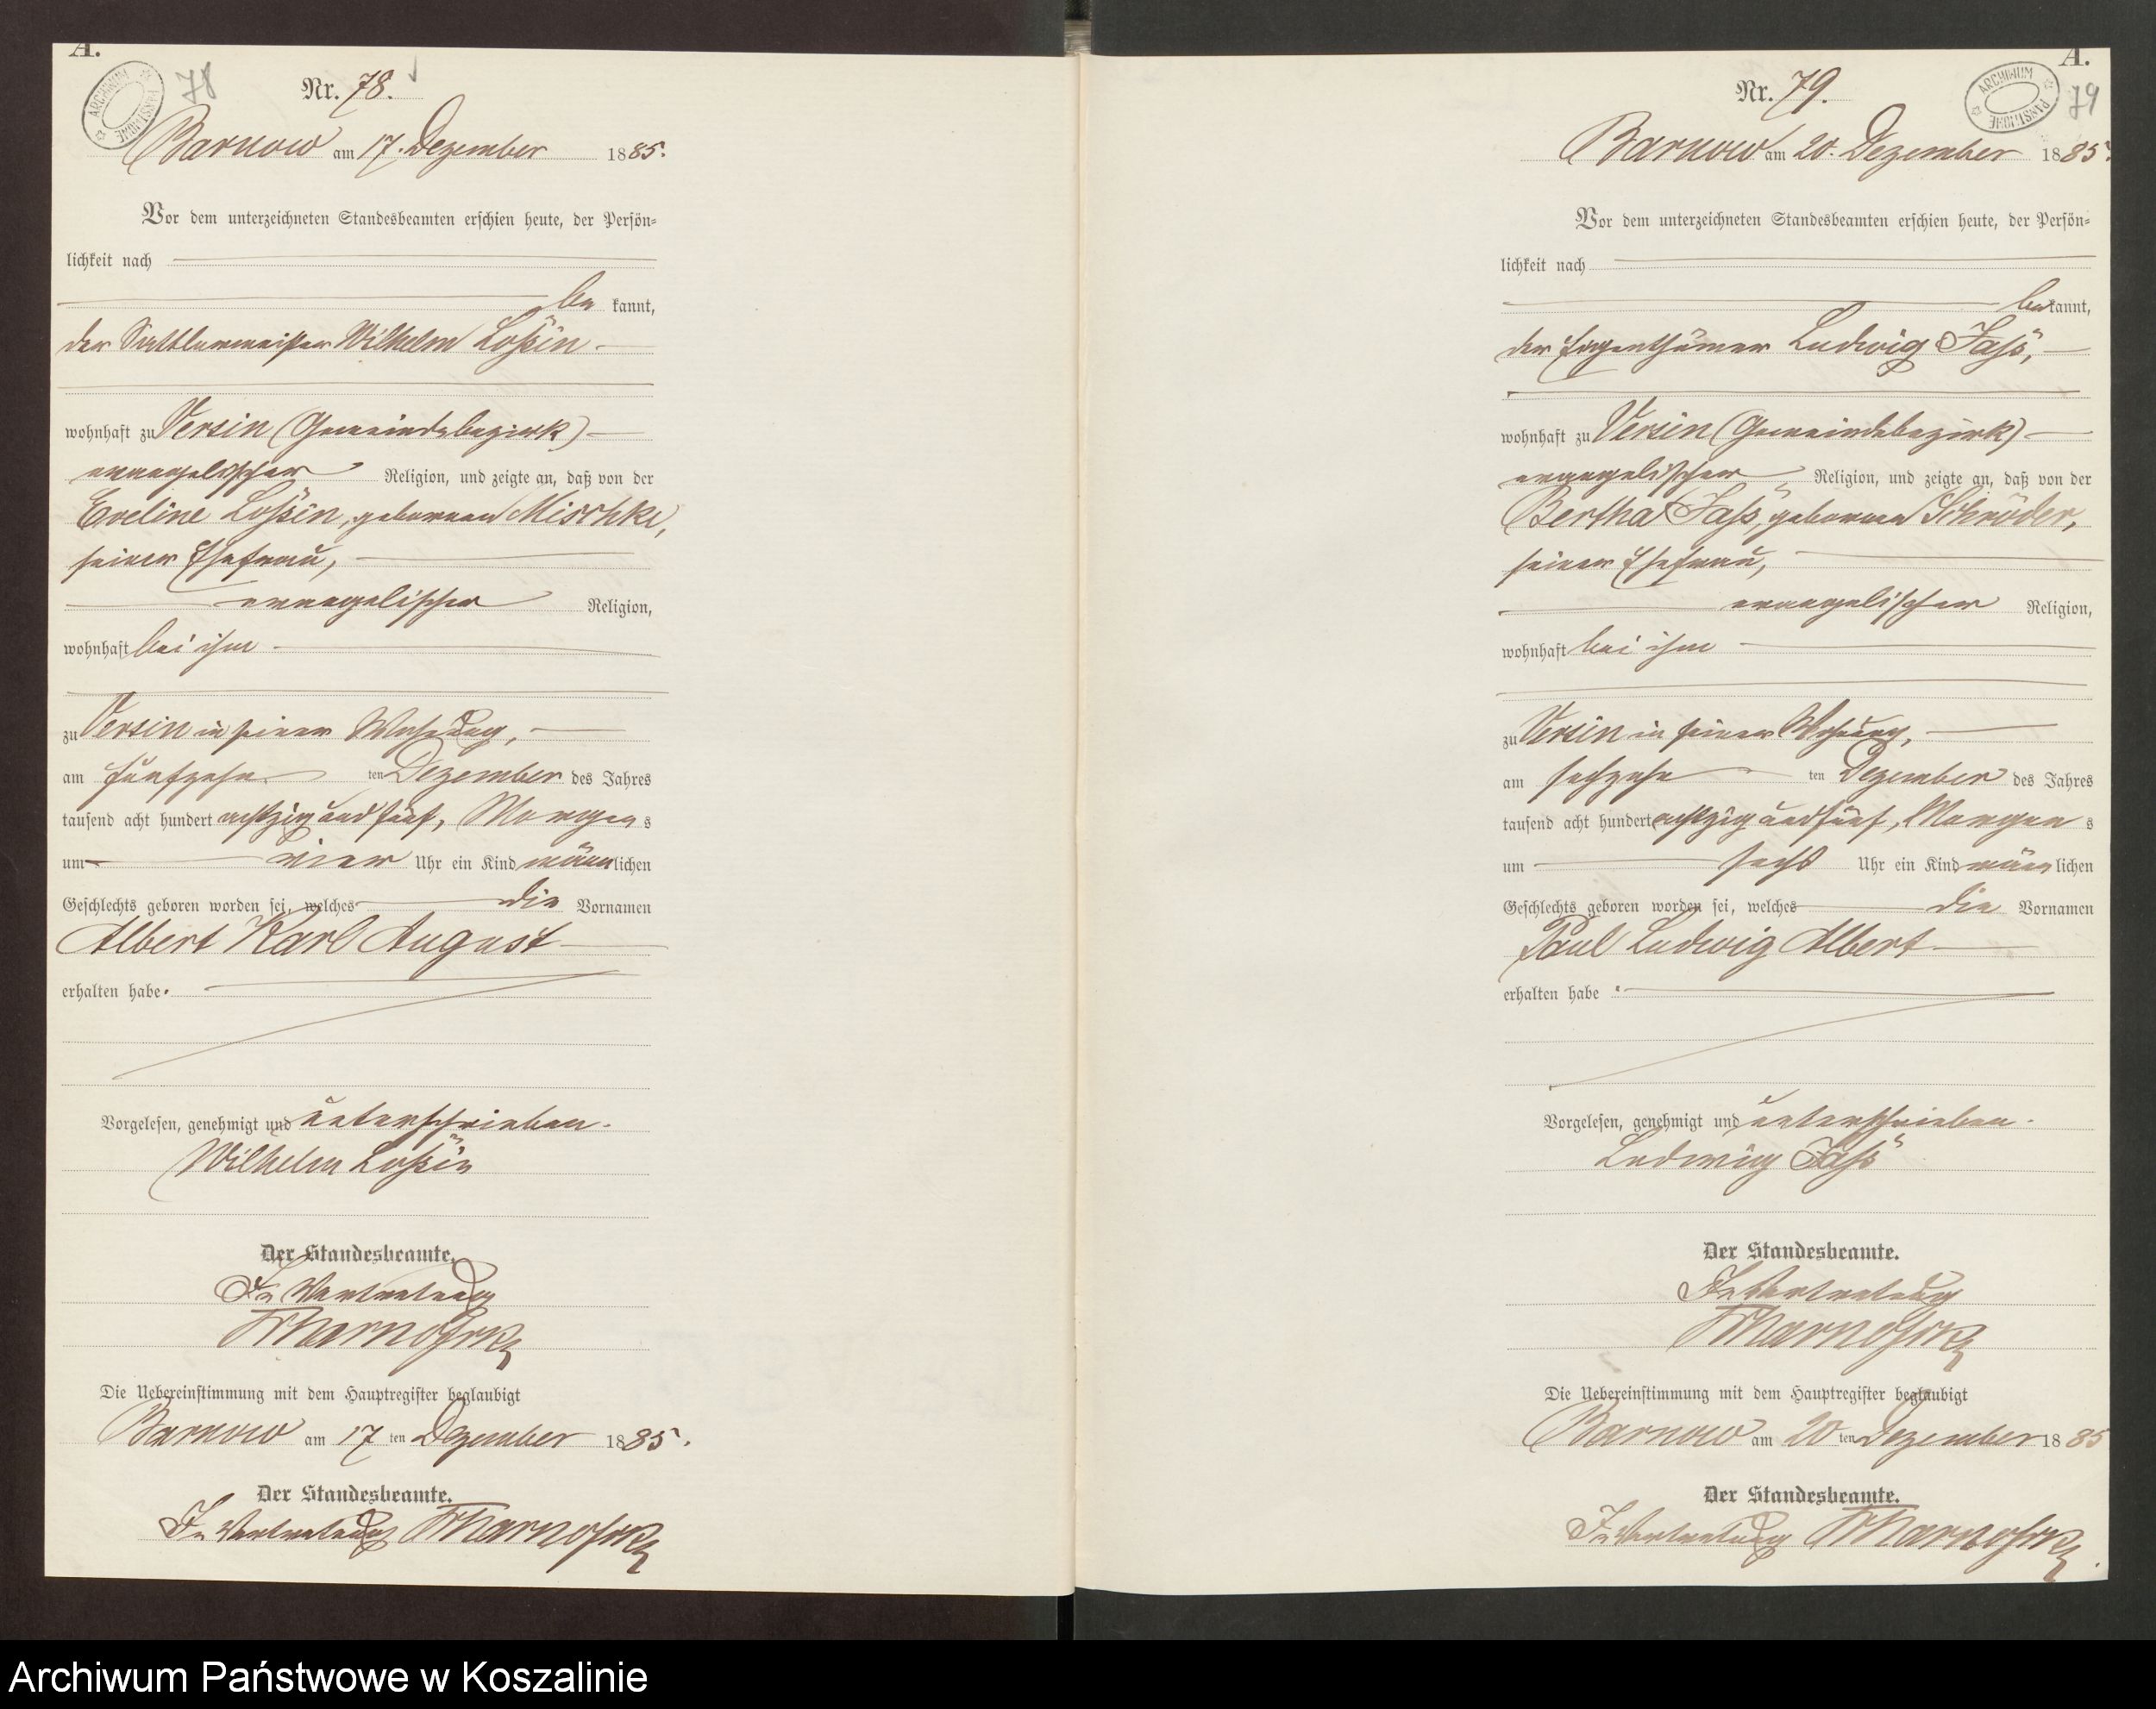 A.
ARCHIWUM PAŃSTWOWE
78
Nr. 78.
Barnow am 17. Dezember 1885.
Vor dem unterzeichneten Standesbeamten erschien heute, der Persön=
lichkeit nach
be kannt,
der Sattlermeister Wilhelm Loßin
wohnhaft zu Versin (Gemeindebezirk)
evangelischer Religion, und zeigte an, daß von der
Eveline Loßin, geborenen Mischke,
seiner Ehefrau,
evangelischer Religion,
wohnhaft bei ihm
zu Versin in seiner Wohnung,
am fünfzehn ten Dezember des Jahres
tausend acht hundert achtzig und fünf, Morgen s
um vier Uhr ein Kind männ lichen
Geschlechts geboren worden sei, welches die Vornamen
Albert Karl August
erhalten habe.
Vorgelesen, genehmigt und unterschrieben.
Wilhelm Loßin
Der Standesbeamte.
In Vertretung
Die Uebereinstimmung mit dem Hauptregister beglaubigt
Barnow am 17 ten Dezember 1885.
Der Standesbeamte.
In Vertretung
A.
ARCHIWUM PAŃSTWOWE
79
Nr. 79.
Barnow am 20. Dezember 1885.
Vor dem unterzeichneten Standesbeamten erschien heute, der Persön=
lichkeit nach
be kannt,
der Eigenthümer Ludwig Jass,
wohnhaft zu Versin (Gemeindebezirk)
evangelischer Religion, und zeigte an, daß von der
Bertha Jass, geborenen Schröder,
seiner Ehefrau,
evangelischer Religion,
wohnhaft bei ihm
zu Versin in seiner Wohnung,
am sechzehn ten Dezember des Jahres
tausend acht hundert achtzig und fünf, Morgen s
um sechs Uhr ein Kind männ lichen
Geschlechts geboren worden sei, welches die Vornamen
Paul Ludwig Albert
erhalten habe.
Vorgelesen, genehmigt und unterschrieben.
Ludwig Jass
Der Standesbeamte.
In Vertretung
Die Uebereinstimmung mit dem Hauptregister beglaubigt
Barnow am 20 ten Dezember 1885
Der Standesbeamte.
In Vertretung
Archiwum Państwowe w Koszalinie